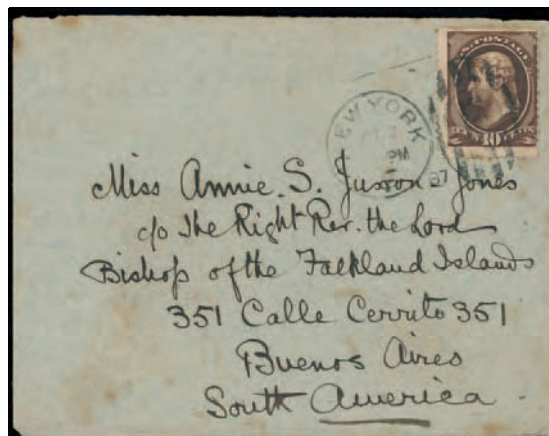 U.S. POSTAGE
TEN 10 CENTS
NEW YORK
PM
87
Miss Annie. S. Jones
c/o The Right Rev. the Lord
Bishop of the Falkland Islands
351 Calle Cerrito 351
Buenos Aires
South America.